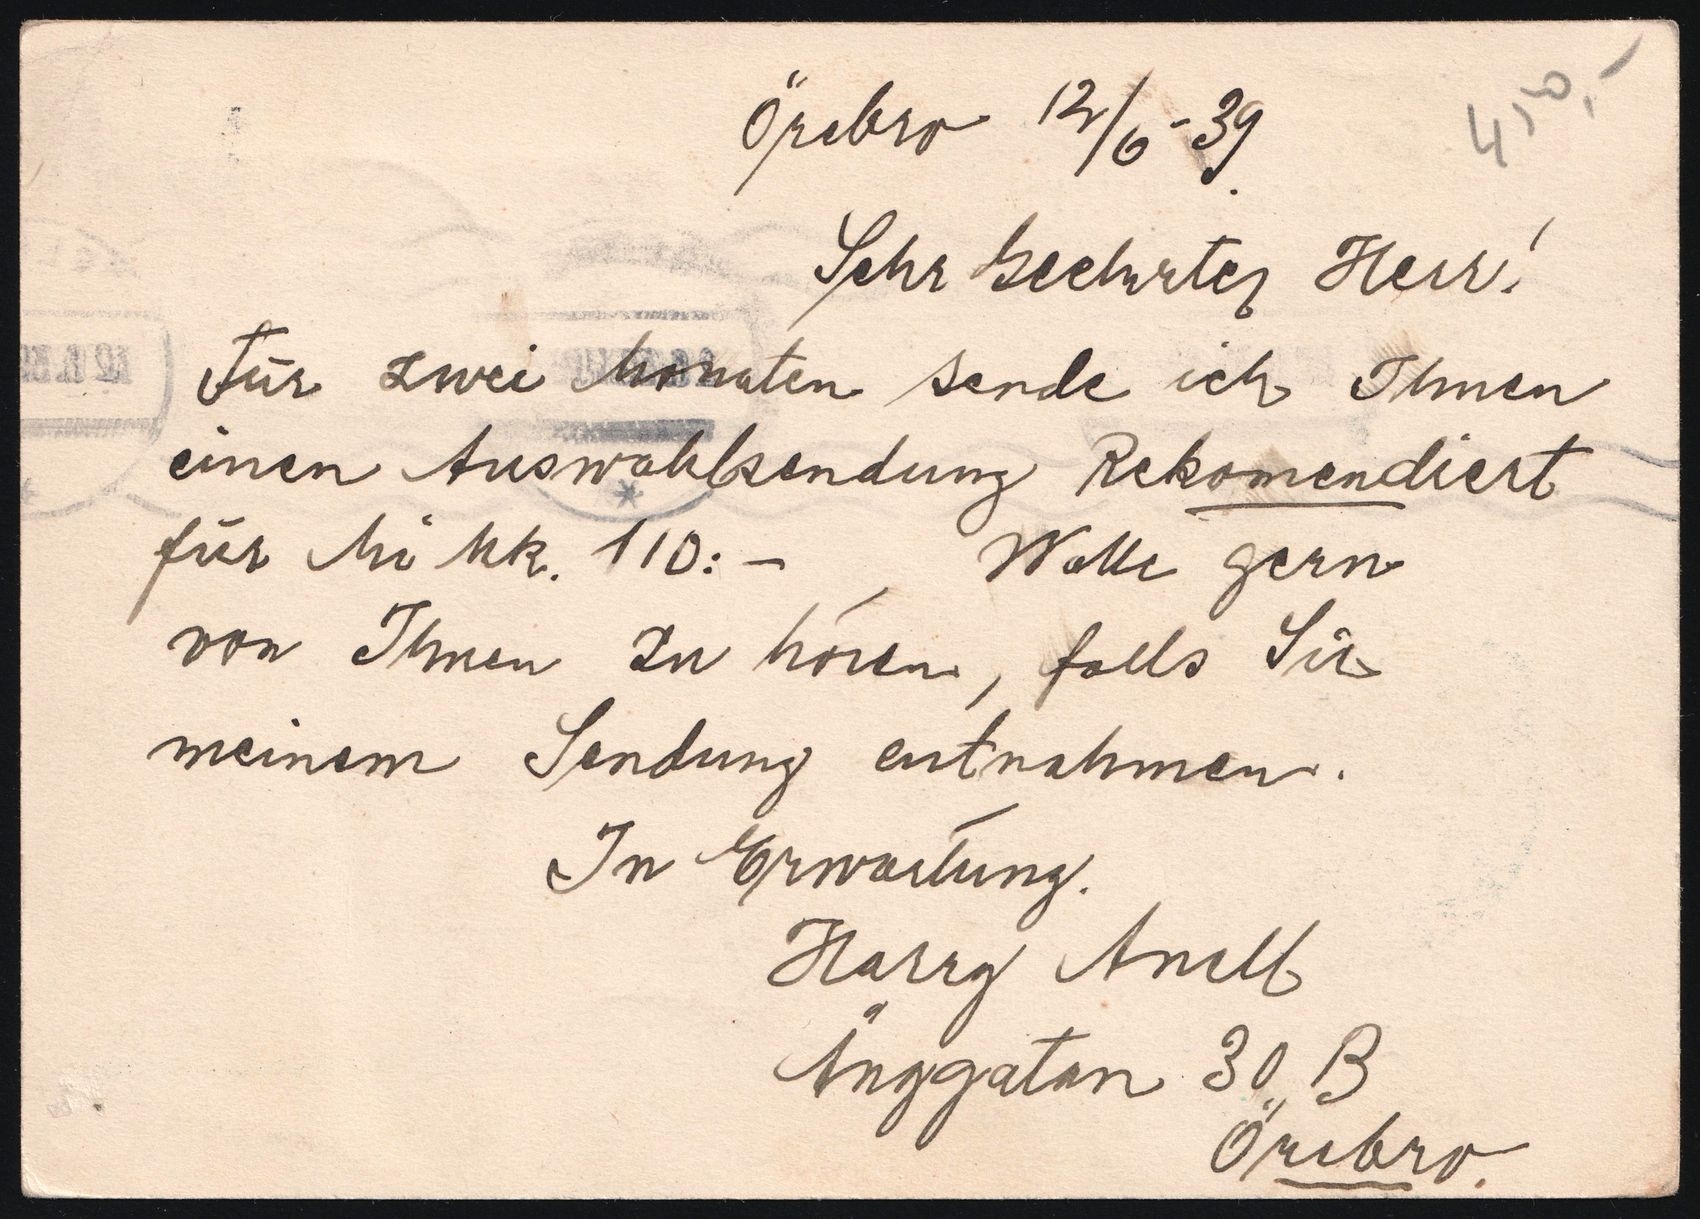 4,50,-
Örebro 12/6-39.
Sehr Geehrter Herr!
Für zwei Monaten sende ich Ihnen
einen Auswahlsendung Rekomendiert
für Mi Mk. 110:- Wolle gern
von Ihnen zu hören, falls Sie
meinem Sendung entnahmen.
In Erwartung.
Harry Anell
Änggatan 30 B
Örebro.